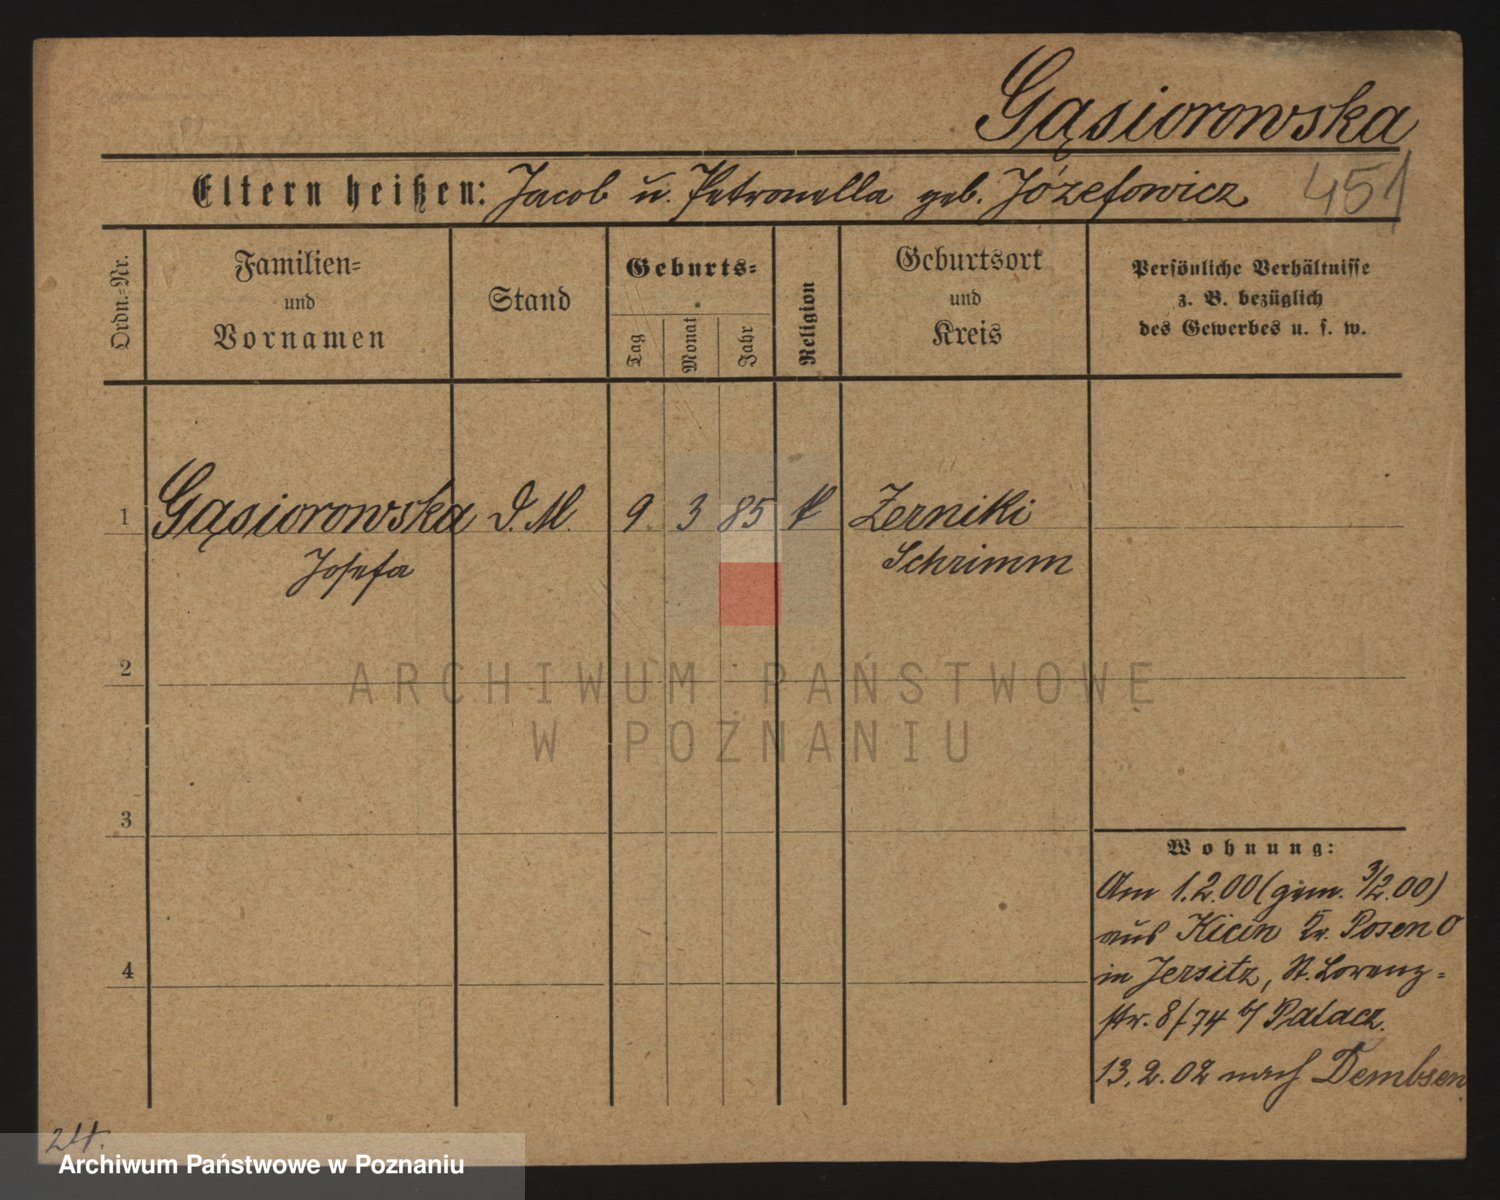 Gąsiorowska
Eltern heißen: Jacob u. Petronella geb. Józefowicz
451
Ordn.-Nr.
Familien-
und
Vornamen
Stand
Geburts-
Tag
Monat
Jahr
Religion
Geburtsort
und
Kreis
Persönliche Verhältnisse
z. B. bezüglich
des Gewerbes u. s. w.
1 Gąsiorowska D. M. 9 3 85 k Zerniki
Josefa Schrimm
2
3
4
Wohnung:
Am 1.2.00 (gem. 3/2.00)
aus Kicin Kr. Posen O
in Jersitz, St. Lorenz-
str. 8/74 b/ Palacz.
13.2.02 nach Dembsen
ARCHIWUM PAŃSTWOWE
W POZNANIU
Archiwum Państwowe w Poznaniu